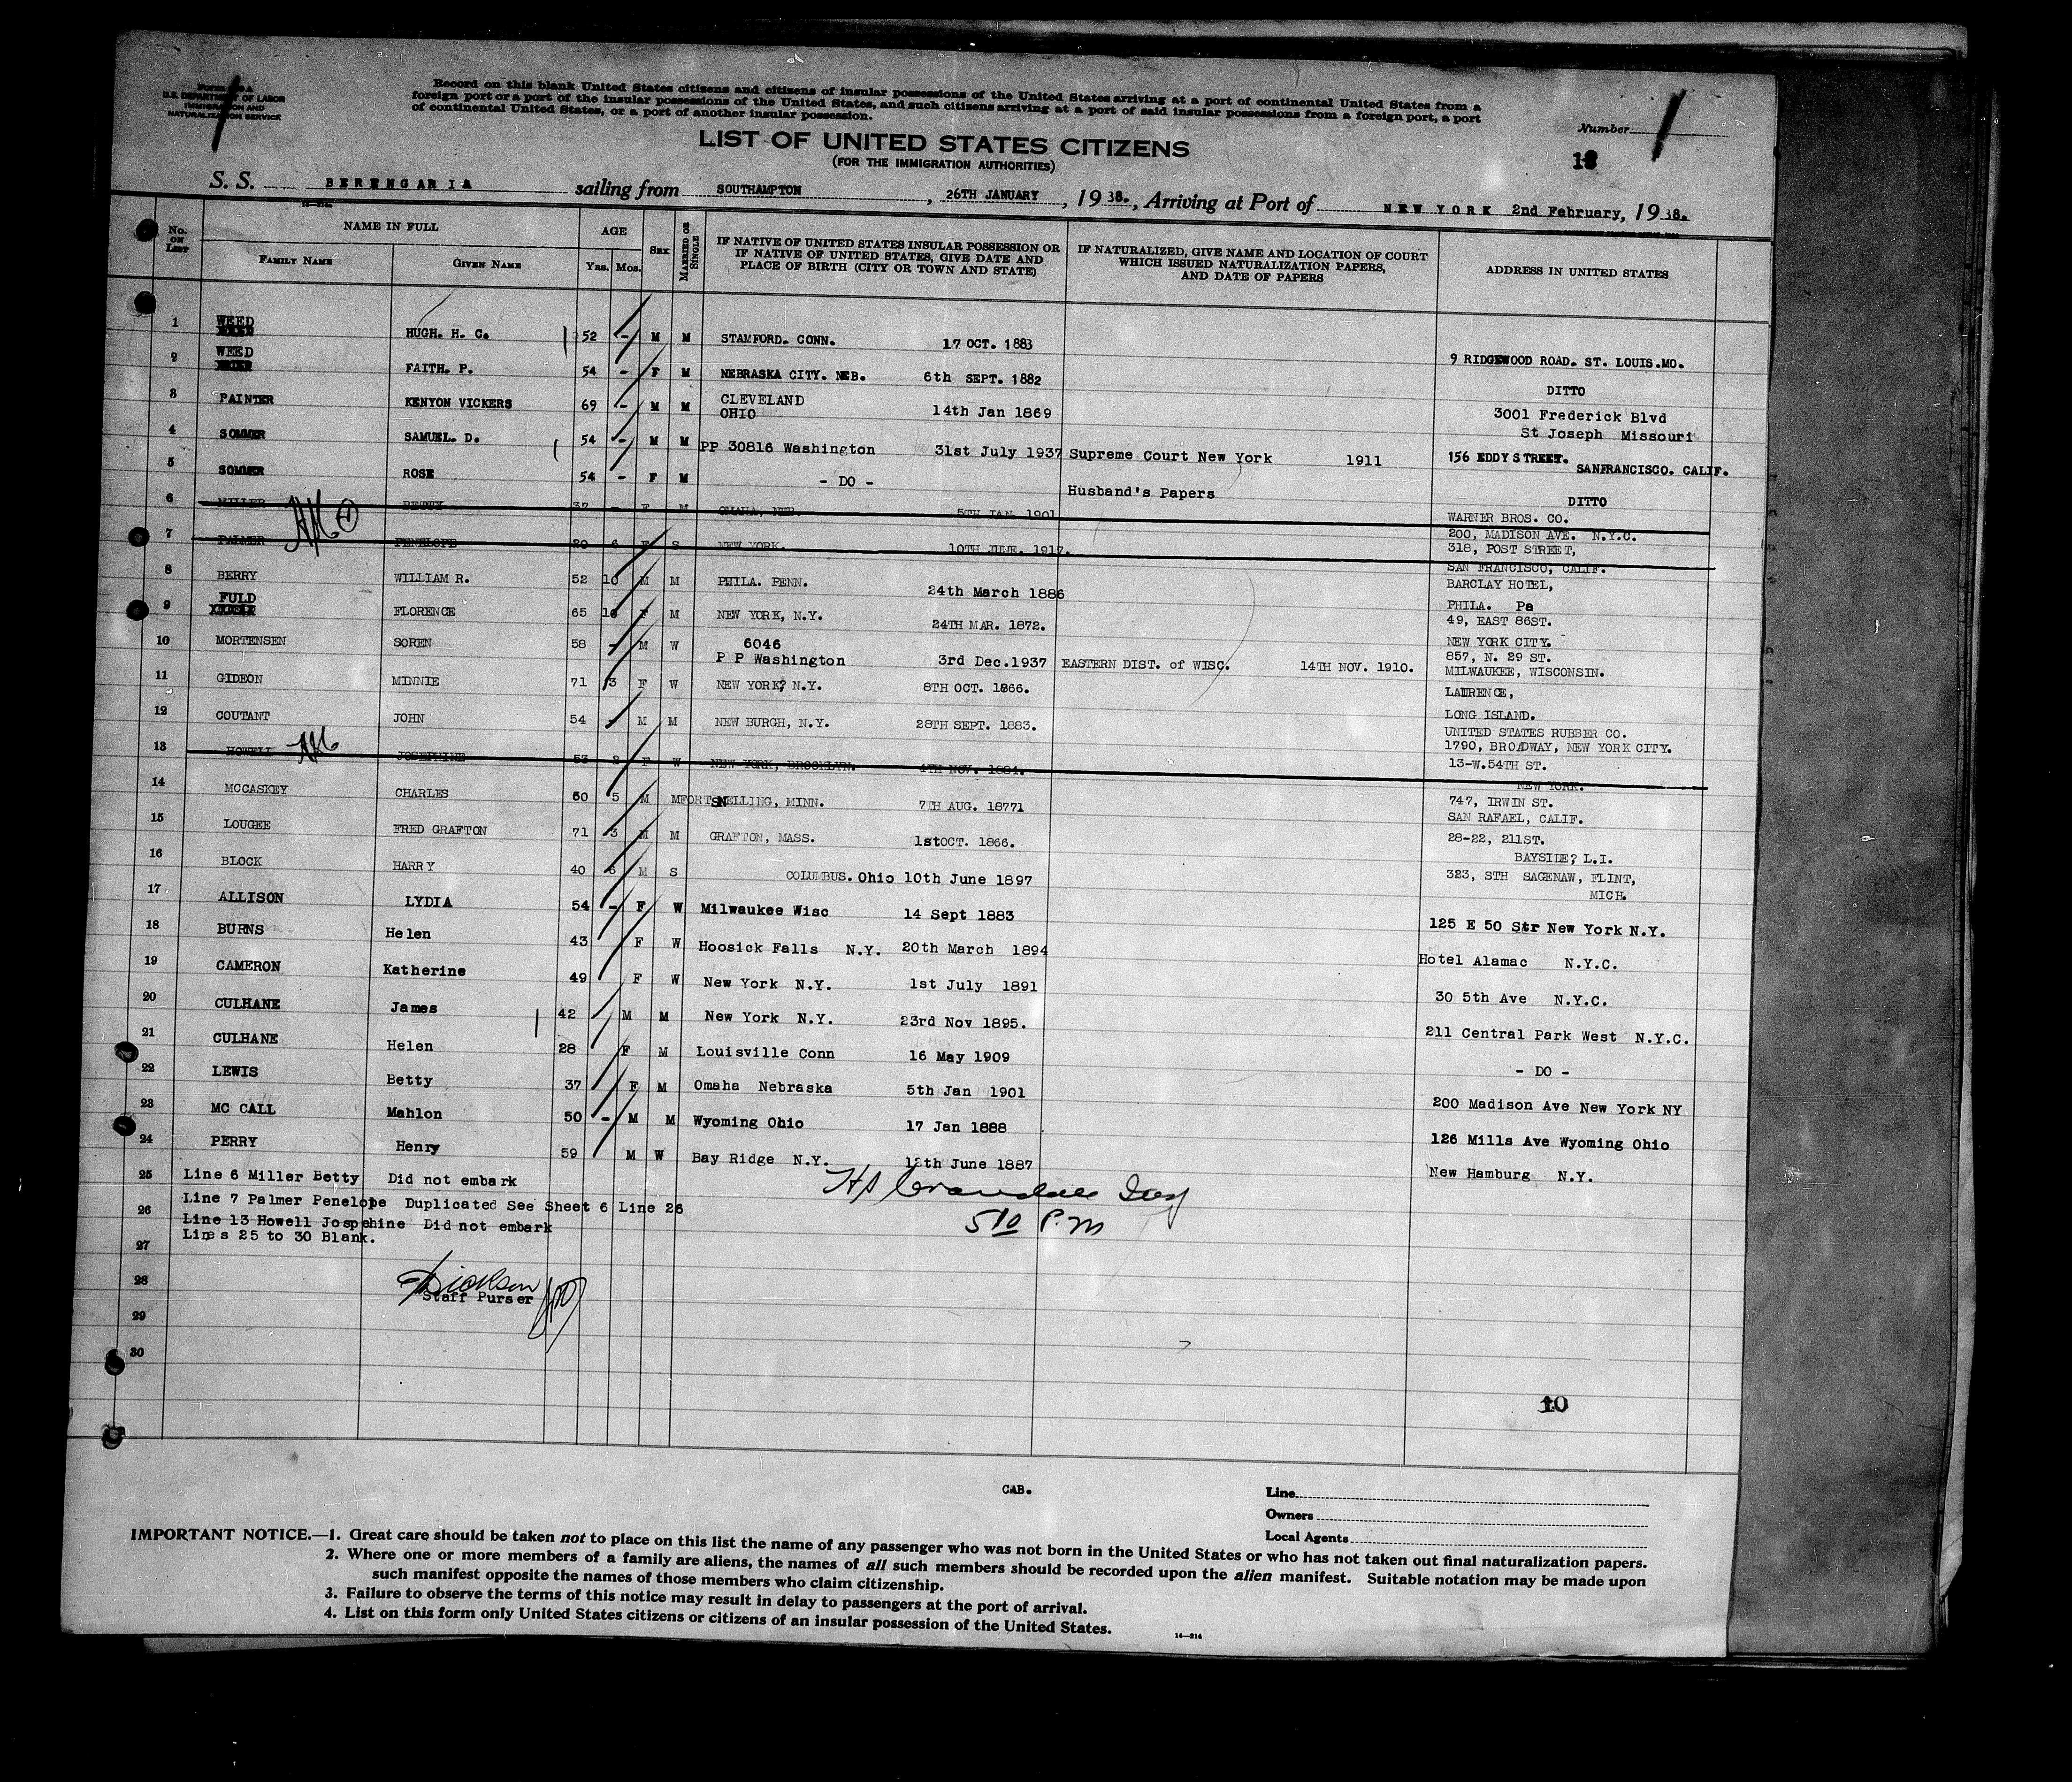 Form A
U.S. DEPARTMENT OF LABOR
IMMIGRATION AND
NATURALIZATION SERVICE
Record on this blank United States citizens and citizens of insular possessions of the United States arriving at a port of continental United States from a
foreign port or a port of the insular possessions of the United States, and such citizens arriving at a port of said insular possessions from a foreign port, a port
of continental United States, or a port of another insular possession.
Number
LIST OF UNITED STATES CITIZENS
(FOR THE IMMIGRATION AUTHORITIES)
S. S. BERENGARIA sailing from SOUTHAMPTON, 26TH JANUARY, 19 38., Arriving at Port of NEW YORK 2nd February, 19 38.
No. on List NAME IN FULL Family Name Given Name AGE Yrs. Mos. Sex Married or Single IF NATIVE OF UNITED STATES INSULAR POSSESSION OR IF NATIVE OF UNITED STATES, GIVE DATE AND PLACE OF BIRTH (CITY OR TOWN AND STATE) IF NATURALIZED, GIVE NAME AND LOCATION OF COURT WHICH ISSUED NATURALIZATION PAPERS, AND DATE OF PAPERS ADDRESS IN UNITED STATES
1 WEED HUGH. H. C. 52 - M M STAMFORD. CONN. 17 OCT. 1883 9 RIDGEWOOD ROAD. ST. LOUIS.MO.
2 WEED FAITH. P. 54 - F M NEBRASKA CITY. NEB. 6th SEPT. 1882 DITTO
3 PAINTER KENYON VICKERS 69 - M M CLEVELAND OHIO 14th Jan 1869 3001 Frederick Blvd St Joseph Missouri
4 SOMMER SAMUEL. D. 54 - M M PP 30816 Washington 31st July 1937 Supreme Court New York 1911 156 EDDY STREET. SANFRANCISCO. CALIF.
5 SOMMER ROSE 54 - F M - DO - Husband's Papers DITTO
6 MILLER BETTY 37 - F M OMAHA, NEB. 5TH JAN. 1901 WARNER BROS. CO. 200, MADISON AVE. N.Y.C.
7 PALMER PENELOPE 20 6 F S NEW YORK. 10TH JUNE. 1917. 318, POST STREET, SAN FRANCISCO, CALIF.
8 BERRY WILLIAM R. 52 10 M M PHILA. PENN. 24th March 1886 BARCLAY HOTEL, PHILA. Pa
9 FULD FLORENCE 65 10 F M NEW YORK, N.Y. 24TH MAR. 1872. 49, EAST 86ST. NEW YORK CITY.
10 MORTENSEN SOREN 58 - M W 6046 P P Washington 3rd Dec.1937 EASTERN DIST. of WISC. 14TH NOV. 1910. 857, N. 29 ST. MILWAUKEE, WISCONSIN.
11 GIDEON MINNIE 71 3 F W NEW YORK? N.Y. 8TH OCT. 1866. LAURENCE, LONG ISLAND.
12 COUTANT JOHN 54 - M M NEW BURGH, N.Y. 28TH SEPT. 1883. UNITED STATES RUBBER CO. 1790, BROADWAY, NEW YORK CITY.
13 HOWELL JOSEPHINE 53 2 F W NEW YORK, BROOKLYN. 4TH NOV. 1884. 13-W.54TH ST. NEW YORK.
14 MCCASKEY CHARLES 60 5 M M FORT SNELLING, MINN. 7TH AUG. 18771 747, IRWIN ST. SAN RAFAEL, CALIF.
15 LOUGEE FRED GRAFTON 71 3 M M GRAFTON, MASS. 1stOCT. 1866. 28-22, 211ST. BAYSIDE? L.I.
16 BLOCK HARRY 40 6 M S COLUMBUS. Ohio 10th June 1897 323, STH SAGENAW, FLINT, MICH.
17 ALLISON LYDIA 54 - F W Milwaukee Wisc 14 Sept 1883 125 E 50 Str New York N.Y.
18 BURNS Helen 43 F W Hoosick Falls N.Y. 20th March 1894 Hotel Alamac N.Y.C.
19 CAMERON Katherine 49 F W New York N.Y. 1st July 1891 30 5th Ave N.Y.C.
20 CULHANE James 42 M M New York N.Y. 23rd Nov 1895. 211 Central Park West N.Y.C.
21 CULHANE Helen 28 F M Louisville Conn 16 May 1909 - DO -
22 LEWIS Betty 37 F M Omaha Nebraska 5th Jan 1901 200 Madison Ave New York NY
23 MC CALL Mahlon 50 - M M Wyoming Ohio 17 Jan 1888 126 Mills Ave Wyoming Ohio
24 PERRY Henry 59 M W Bay Ridge N.Y. June 1887 New Hamburg N.Y.
25 Line 6 Miller Betty Did not embark
Line 7 Palmer Penelope Duplicated See Sheet 6 Line 26
26 Line 13 Howell Jospehine Did not embark
Lines 25 to 30 Blank.
510 P.M
27
28 Dickson
Staff Purser
29
30
10
CAB.
Line
Owners
Local Agents
IMPORTANT NOTICE.—1. Great care should be taken not to place on this list the name of any passenger who was not born in the United States or who has not taken out final naturalization papers.
2. Where one or more members of a family are aliens, the names of all such members should be recorded upon the alien manifest. Suitable notation may be made upon
such manifest opposite the names of those members who claim citizenship.
3. Failure to observe the terms of this notice may result in delay to passengers at the port of arrival.
4. List on this form only United States citizens or citizens of an insular possession of the United States.
14—214